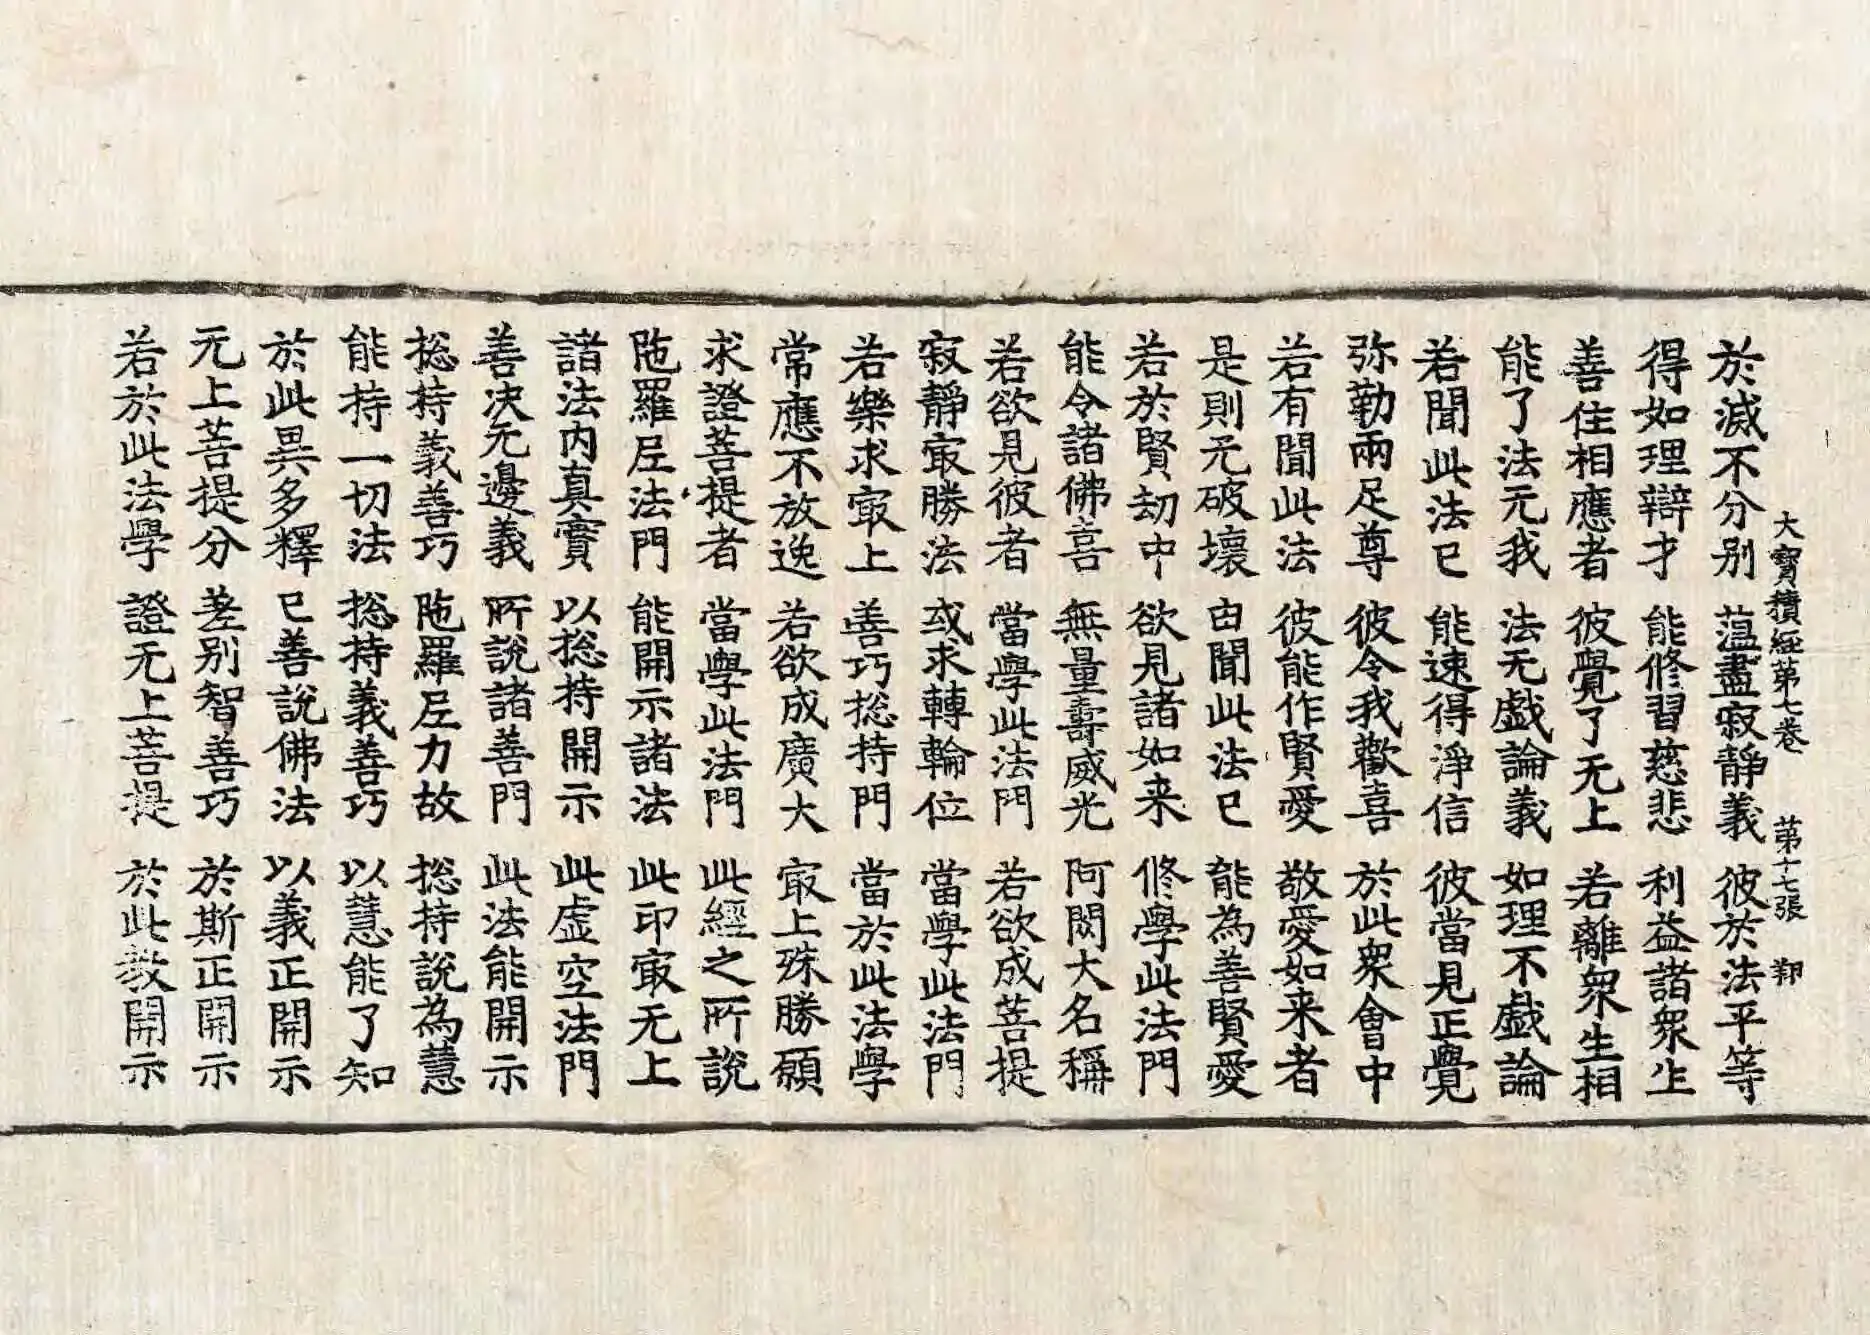 大寶積經第七卷　第十七張　鞫
於滅不分别　薀盡寂靜義　彼於法平等
得如理辯才　能修習慈悲　利益諸衆生
善住相應者　彼覺了无上　若離衆生相
能了法无我　法无戲論義　如理不戲論
若聞此法已　能速得淨信　彼當見正覺
弥勒兩足尊　彼令我歡喜　於此衆會中
若有聞此法　彼能作賢愛　敬愛如来者
是則无破壞　由聞此法已　能為善賢愛
若於賢劫中　欲見諸如来　修學此法門
能令諸佛喜　無量壽威光　阿閦大名稱
若欲見彼者　當學此法門　若欲成菩提
寂靜㝡勝法　或求轉輪位　當學此法門
若樂求㝡上　善巧捴持門　當於此法學
常應不放逸　若欲成廣大　㝡上殊勝願
求證菩提者　當學此法門　此經之所說
陁羅𡰱法門　能開示諸法　此印㝡无上
諸法内真實　以捴持開示　此虚空法門
善决无邊義　所說諸善門　此法能開示
捴持義善巧　陁羅𡰱力故　捴持說為慧
能持一切法　捴持義善巧　以慧能了知
於此異多釋　已善說佛法　以義正開示
无上菩提分　差别智善巧　於斯正開示
若於此法學　證无上菩提　於此教開示